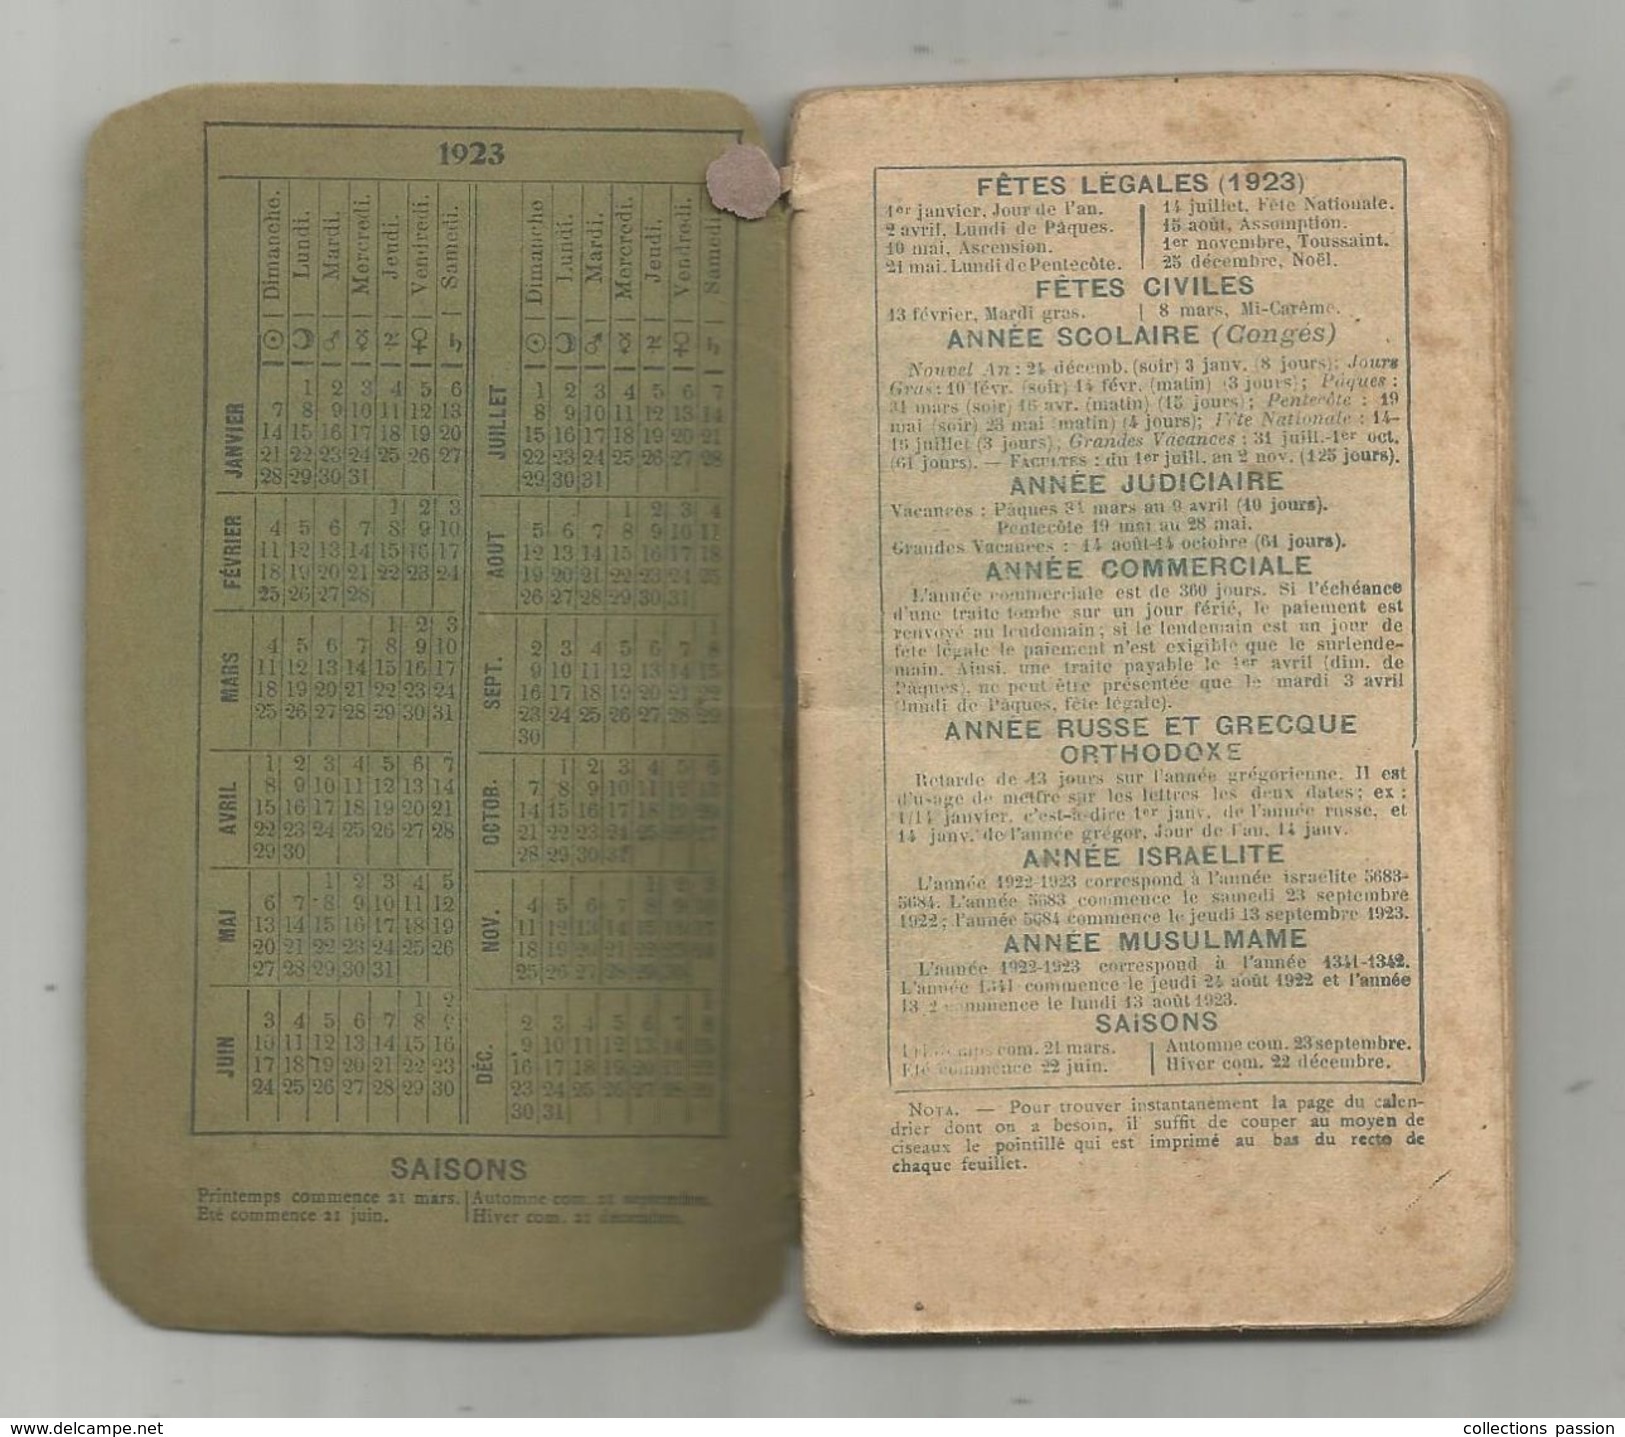 1923
Dimanche. Lundi. Mardi. Mercredi. Jeudi. Vendredi. Samedi.
☉ ☽ ♂ ☿ ♃ ♀ ♄
JANVIER
1 2 3 4 5 6
7 8 9 10 11 12 13
14 15 16 17 18 19 20
21 22 23 24 25 26 27
28 29 30 31
FÉVRIER
1 2 3
4 5 6 7 8 9 10
11 12 13 14 15 16 17
18 19 20 21 22 23 24
25 26 27 28
MARS
1 2 3
4 5 6 7 8 9 10
11 12 13 14 15 16 17
18 19 20 21 22 23 24
25 26 27 28 29 30 31
AVRIL
1 2 3 4 5 6 7
8 9 10 11 12 13 14
15 16 17 18 19 20 21
22 23 24 25 26 27 28
29 30
MAI
1 2 3 4 5
6 7 8 9 10 11 12
13 14 15 16 17 18 19
20 21 22 23 24 25 26
27 28 29 30 31
JUIN
1 2
3 4 5 6 7 8 9
10 11 12 13 14 15 16
17 18 19 20 21 22 23
24 25 26 27 28 29 30
Dimanche Lundi. Mardi. Mercredi. Jeudi. Vendredi. Samedi
☉ ☽ ♂ ☿ ♃ ♀ ♄
JUILLET
1 2 3 4 5 6 7
8 9 10 11 12 13 14
15 16 17 18 19 20 21
22 23 24 25 26 27 28
29 30 31
AOUT
1 2 3 4
5 6 7 8 9 10 11
12 13 14 15 16 17 18
19 20 21 22 23 24 25
26 27 28 29 30 31
SEPT.
1
2 3 4 5 6 7 8
9 10 11 12 13 14 15
16 17 18 19 20 21 22
23 24 25 26 27 28 29
30
OCTOB.
1 2 3 4 5 6
7 8 9 10 11 12 13
14 15 16 17 18 19 20
21 22 23 24 25 26 27
28 29 30 31
NOV.
1 2 3
4 5 6 7 8 9 10
11 12 13 14 15 16 17
18 19 20 21 22 23 24
25 26 27 28
DÉC.
1
2 3 4 5 6 7 8
9 10 11 12 13 14 15
16 17 18 19 20 21 22
23 24 25 26 27 28 29
30 31
SAISONS
Printemps commence 21 mars.
Eté commence 21 juin.
Automne com. 21 septembre.
Hiver com. 21 décembre.
FÊTES LÉGALES (1923)
1er janvier, Jour de l'an.
2 avril, Lundi de Pâques.
10 mai, Ascension.
21 mai. Lundi de Pentecôte.
14 juillet, Fête Nationale.
15 août, Assomption.
1er novembre, Toussaint.
25 décembre, Noël.
FÊTES CIVILES
13 février, Mardi gras. | 8 mars, Mi-Carême.
ANNÉE SCOLAIRE (Congés)
Nouvel An : 24 décemb. (soir) 3 janv. (8 jours); Jours
Gras: 10 févr. (soir) 14 févr. (matin) (3 jours); Pâques :
31 mars (soir) 16 avr. (matin) (15 jours); Pentecôte : 19
mai (soir) 23 mai (matin) (4 jours); Fête Nationale : 14-
16 juillet (3 jours); Grandes Vacances : 31 juill.-1er oct.
(61 jours). — FACULTÉS : du 1er juill. au 2 nov. (125 jours).
ANNÉE JUDICIAIRE
Vacances : Pâques 31 mars au 9 avril (10 jours).
— Pentecôte 19 mai au 28 mai.
Grandes Vacances : 14 août-14 octobre (61 jours).
ANNÉE COMMERCIALE
L'année commerciale est de 360 jours. Si l'échéance
d'une traite tombe sur un jour férié, le paiement est
renvoyé au lendemain; si le lendemain est un jour de
fête légale le paiement n'est exigible que le surlende-
main. Ainsi, une traite payable le 1er avril (dim. de
Pâques), ne peut être présentée que le mardi 3 avril
(lundi de Pâques, fête légale).
ANNÉE RUSSE ET GRECQUE
ORTHODOXE
Retarde de 13 jours sur l'année grégorienne. Il est
d'usage de mettre sur les lettres les deux dates; ex :
1/14 janvier, c'est-à-dire 1er janv. de l'année russe, et
14 janv. de l'année grégor, Jour de l'an, 14 janv.
ANNÉE ISRAELITE
L'année 1922-1923 correspond à l'année israélite 5683-
5684. L'année 5683 commence le samedi 23 septembre
1922; l'année 5684 commence le jeudi 13 septembre 1923.
ANNÉE MUSULMAME
L'année 1922-1923 correspond à l'année 1341-1342.
L'année 1341 commence le jeudi 24 août 1922 et l'année
13 2 commence le lundi 13 août 1923.
SAISONS
Printemps com. 21 mars.
Eté commence 22 juin.
Automne com. 23 septembre.
Hiver com. 22 décembre.
NOTA. — Pour trouver instantanément la page du calen-
drier dont on a besoin, il suffit de couper au moyen de
ciseaux le pointillé qui est imprimé au bas du recto de
chaque feuillet.
collections passion